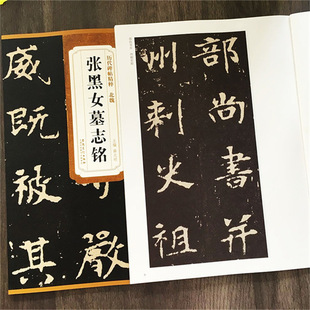 历代碑帖精粹 北魏
张黑女墓志铭
嚴
威既被淇
部尚書并
州刺史祖